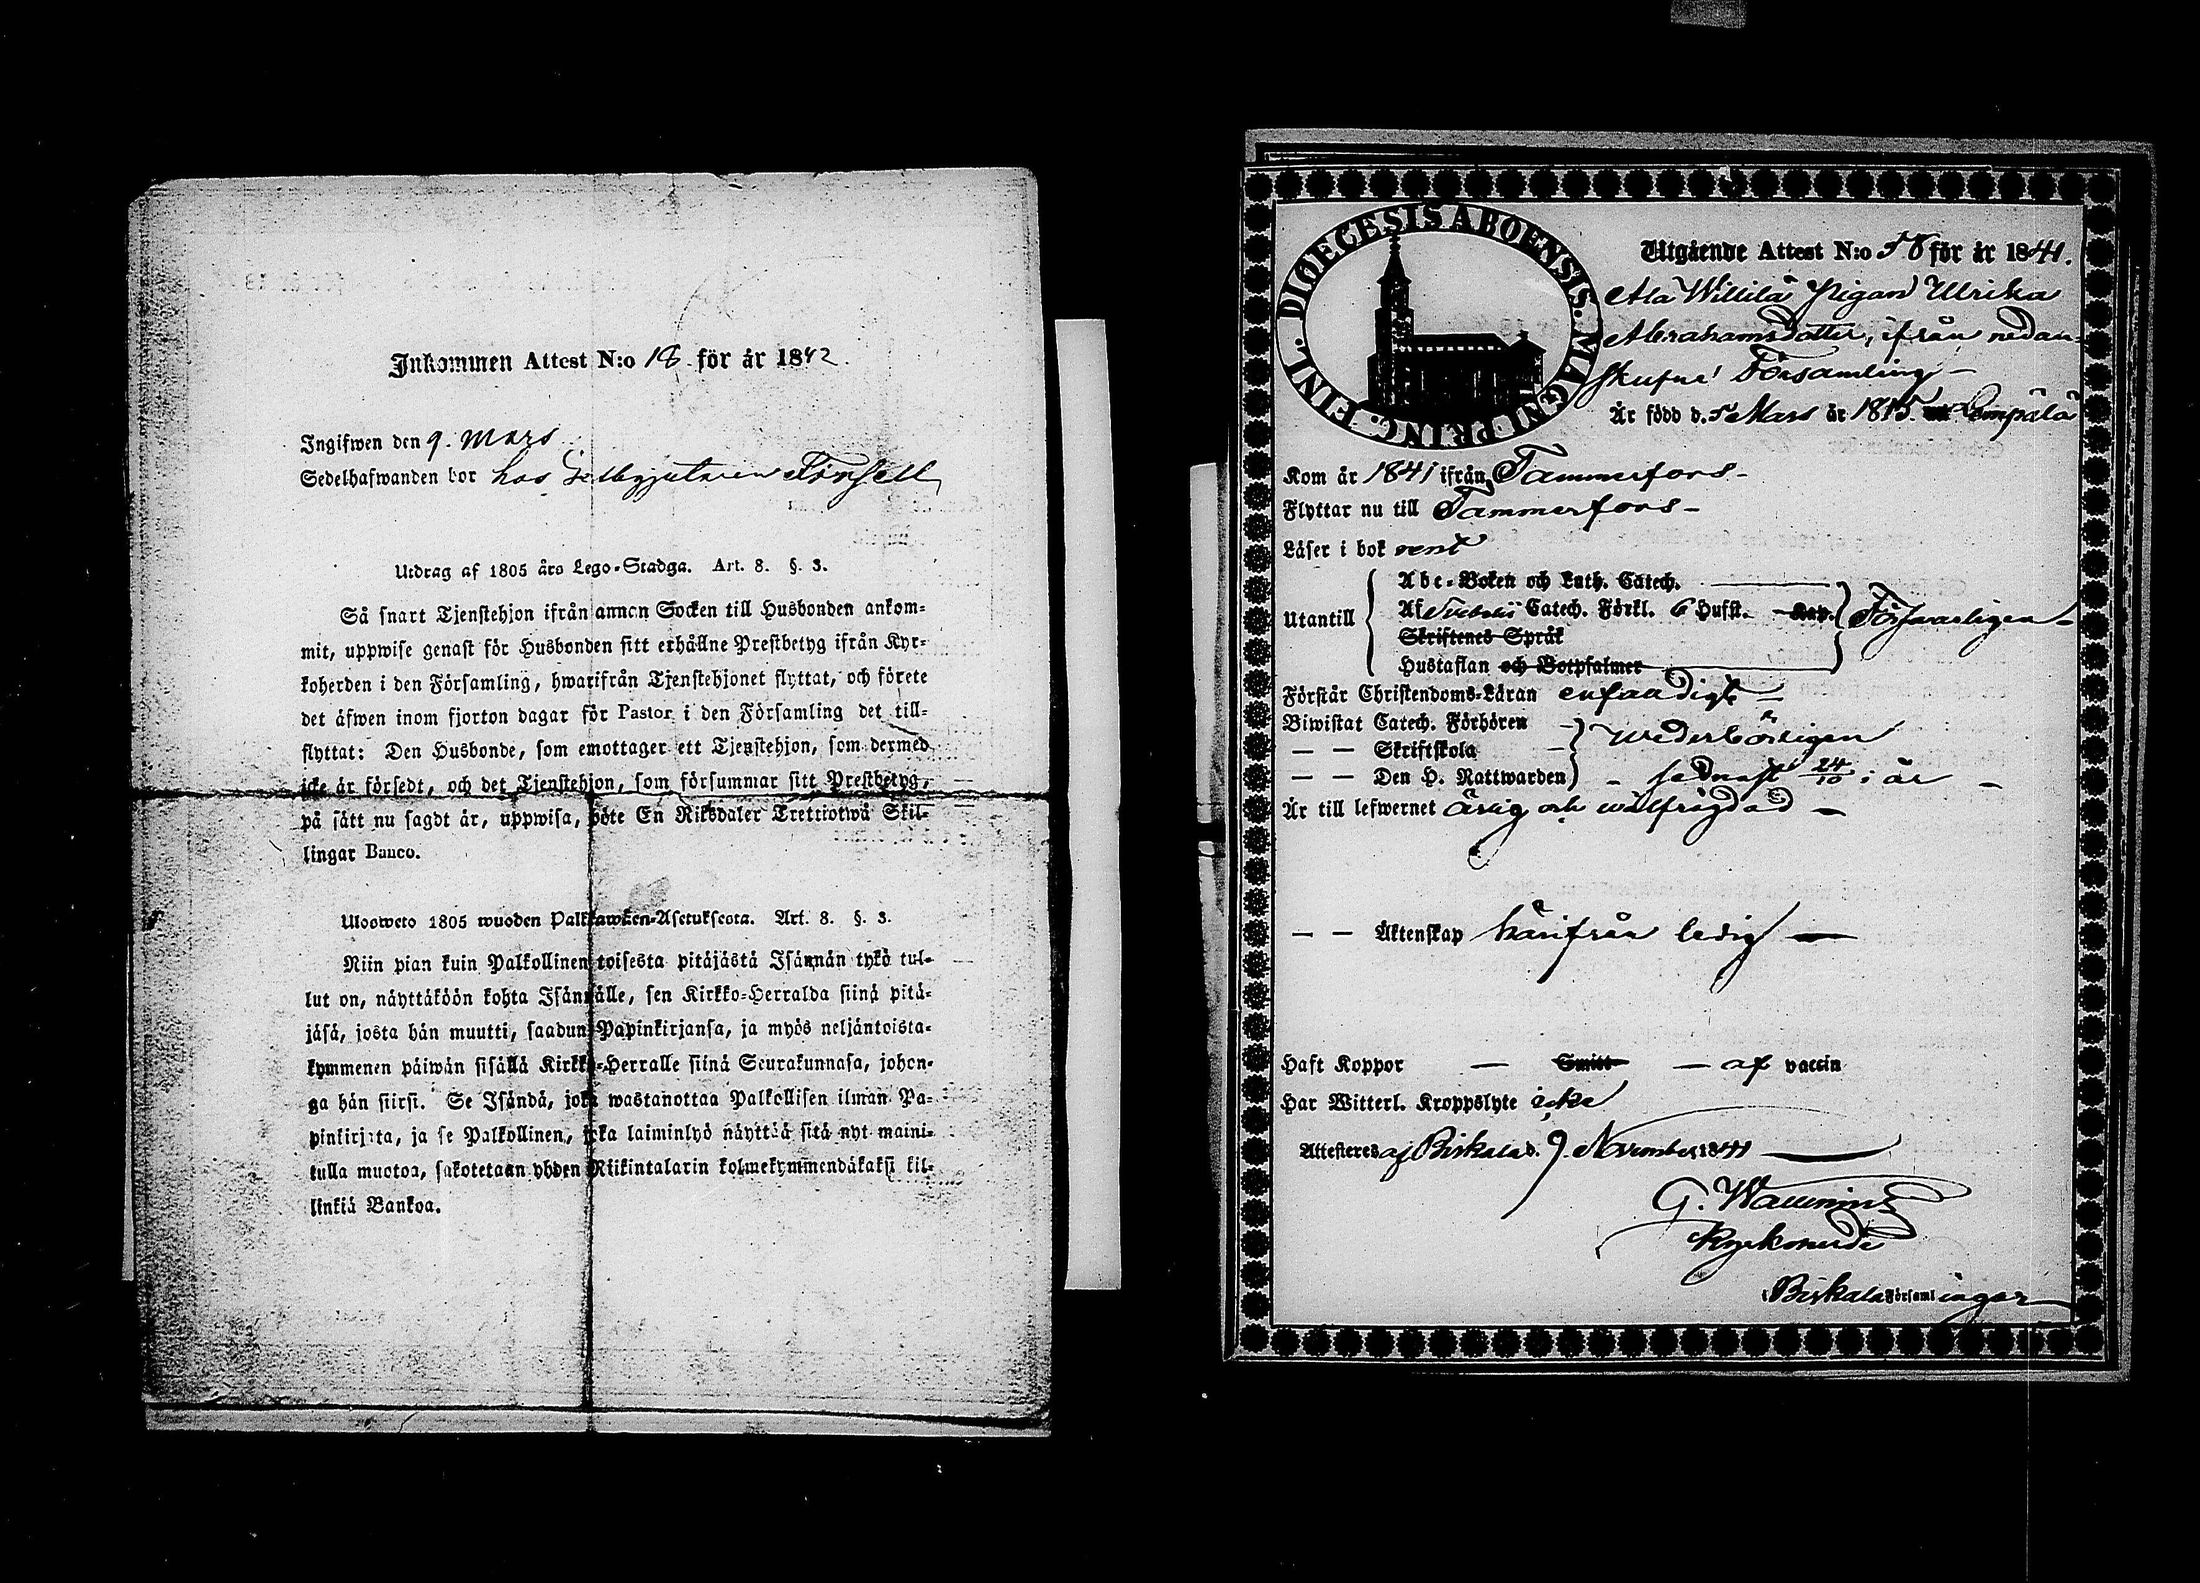 Inkommen Attest N:o 18 för år 1842.
Ingifwen den 9. Mars
Sedelhafwanden bor hos
Utdrag af 1805 års Lego-Stadga. Art. 8. §. 3.
Så snart Tjenstehjon ifrån annan Socken till Husbonden ankom-
mit, uppwise genast för Husbonden sitt erhållne Prestbetyg ifrån Kyr-
koherden i den Församling, hwarifrån Tjenstehjonet flyttat, och förete
det äfwen inom fjorton dagar för Pastor i den Församling det till-
flyttat: Den Husbonde, som emottager ett Tjenstehjon, som dermed
icke är försedt, och det Tjenstehjon, som försummar sitt Prestbetyg,
på sätt nu sagdt är, uppwisa, böte En Riksdaler Trettiotwå Skil-
lingar Banco.
Ulosweto 1805 wuoden Palkkawäen-Asetuksesta. Art. 8. §. 3.
Niin pian kuin Palkollinen toisesta pitäjästä Isännän tykö tul-
lut on, näyttäköön kohta Isännälle, sen Kirkko-Herralda siinä pitä-
jäsä, josta hän muutti, saadun Papinkirjansa, ja myös neljäntoista-
kymmenen päiwän sisällä Kirkko-Herralle siinä Seurakunnasa, johon-
ga hän siirsi. Se Isändä, joka wastanottaa Palkollisen ilman Pa-
pinkirjata, ja se Palkollinen, joka laiminlyö näyttää sitä nyt maini-
tulla muotoa, sakotetaan yhden Riikintalarin kolmekymmendäkaksi kil-
linkiä Bankoa.
DIOECESIS ABOENSIS. MAGNI PRINC. FINL.
Utgående Attest N:o 58 för år 1841.
Ala Willilä Pigan Ulrika
Abrahamsdotter, ifrån nedan-
skrefne Församling –
Är född d. 5 Mars år 1815. Lempälä
Kom år 1841 ifrån Tammerfors –
Flyttar nu till Tammerfors –
Läser i bok rent
Utantill
Abc-Boken och Luth. Catech.
Af Svebelii Catech. Förkl. 6 Hufst. – Kap. Försvarligen –
Skriftenes Språk
Hustaflan och Botpsalmer
Förstår Christendoms-Läran enfaldigt –
Biwistat Catech. Förhören
— — Skriftskola – wederbörligen
— — Den H. Nattwarden – sednast 24/10 i år –
Är till lefwernet ärlig och wälfrägdad –
— — Äktenskap härifrån ledig –
Haft Koppor — Smitt — af vaccin
Har Witterl. Kroppslyte icke
Attesteres af Birkala d. 9 November 1841
G. Wallenius
Kyrkoherde
i Birkala Församlingar